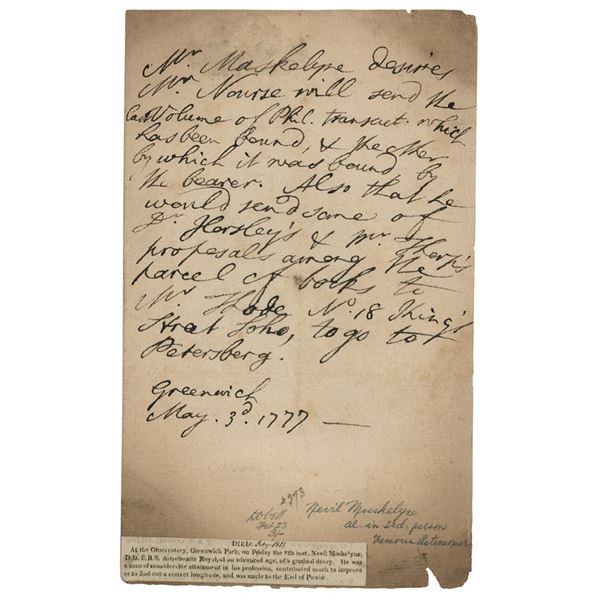 Mr. Maskelyne desires
Mr. Nourse will send the
last Volume of Phil. transact. which
has been bound, & the other
by which it was bound by
the bearer. Also that he
would send some of
Dr. Horsley's & Mr. Thorp's
proposals among the
parcel of books to
Mr. No. 18 King's
Street Soho, to go to
Petersberg.
Greenwich
May. 3d. 1777 —
Feb 23
Nevil Maskelyne
al. in 3rd. person
Famous Astronomer
DIED. Feby 1811
At the Observatory, Greenwich Park, on Friday the 8th inst, Nevil Maskelyne,
D.D. F.R.S. Astronomer Royal, at an advanced age, of a gradual decay. He was
a man of considerable attainment in his profession, contributed much to improve
or to find out a correct longitude, and was uncle to the Earl of Powis